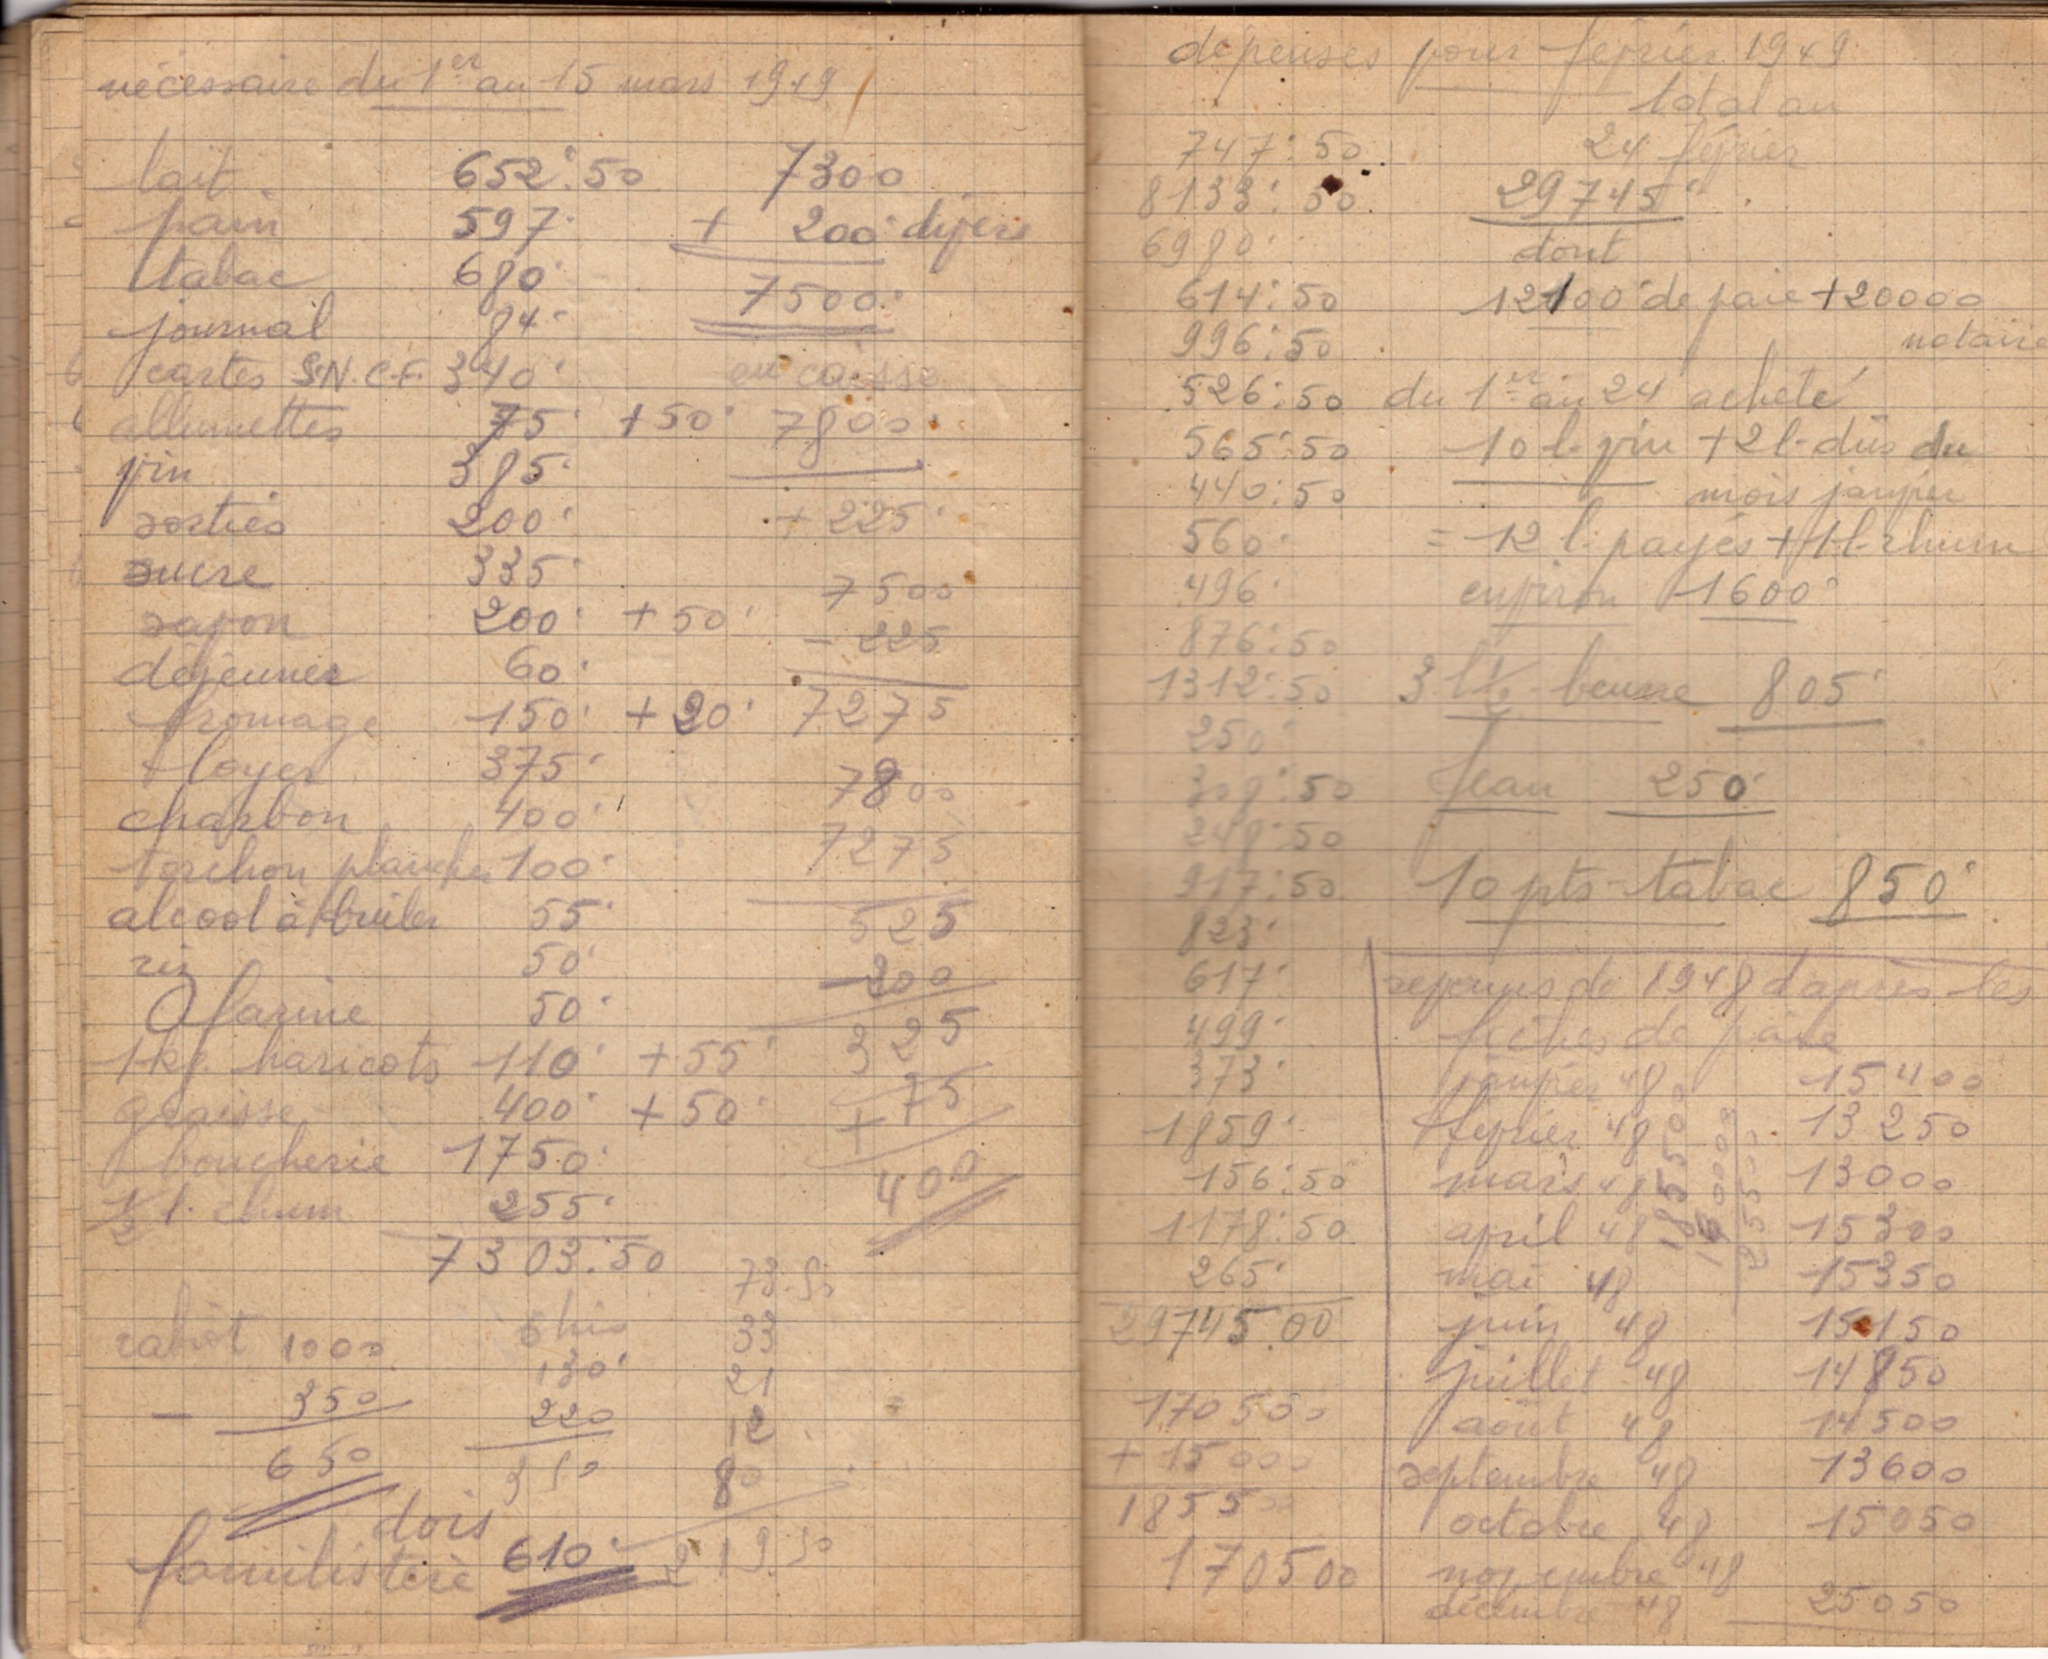 nécessaire du 1er au 15 mars 1949
lait 652:50 7300
pain 597 + 200 divers
tabac 680 7500
journal 84
cartes S.N.C.F. 340 en caisse
allumettes 75 +50 7800
vin 385
sorties 200 + 225
sucre 335 7500
savon 200 +50 - 225
déjeuner 60
fromage 150 +20 7275
+ loyer 375 7800
charbon 400 7275
torchon plancher 100
alcool à bruler 55 525
riz 50 -200
farine 50 325
1 kg. haricots 110 +55
graisse 400 +50 + 75
boucherie 1750 400
1/2 l. rhum 255
7303:50
73.50
rabiot 1000 33
130 21
- 350 220 12
650 350 80
dois
familistère 610 219.50
dépenses pour février 1949
total au
747:50 24 février
8133:50 29745
6980 dont
614:50 12100 de paie +20000
996:50 notaire
526:50 du 1er au 24 acheté
565:50 10 l. vin +2 l. dûs du
440:50 mois janvier
560 = 12 l. payés +1 l. rhum
496 environ 1600
876:50
1312:50 3 l 1/2 beurre 805
250
308:50 Jean 250
248:50
917:50 10 pts tabac 850
823
617 revenus de 1948 d'après les
499 fiches de paie
373 janvier 48 15400
1859 février 48 13250
156:50 mars 48 13000
1178:50 april 48 15300
265 mai 48 15350
29745.00 juin 48 15150
juillet 48 14850
170500 août 48 14500
+ 15000 septembre 48 13600
185500 octobre 48 15050
170500 novembre 48
décembre 48 25050